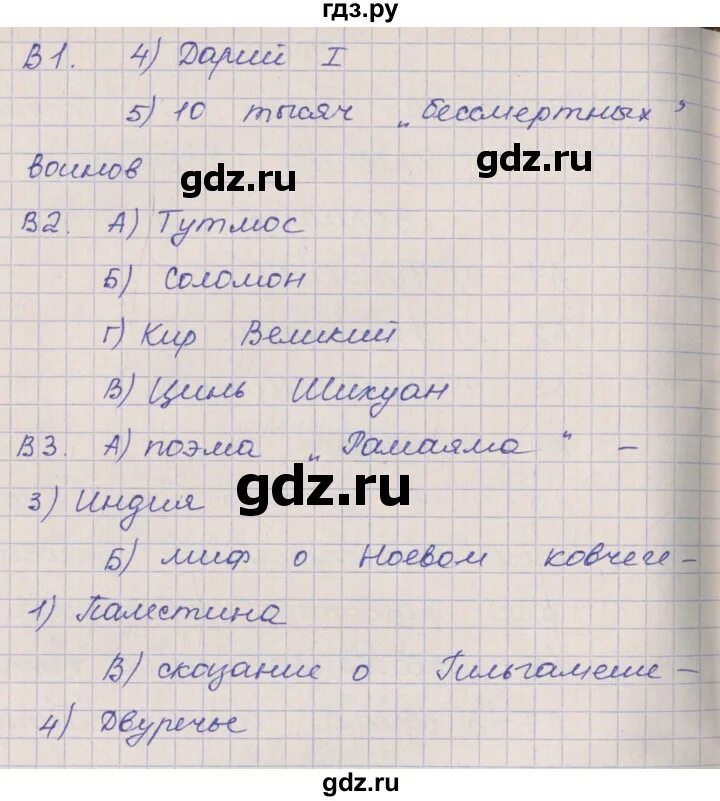 гдз.ру
В1. 4) Дарий I
5) 10 тысяч „бессмертных"
воинов
gdz.ru
gdz.ru
В2. А) Тутмос
Б) Соломон
Г) Кир Великий
В) Цинь Шихуан
В3. А) поэма „Рамаяма" -
gdz.ru
3) Индия
Б) миф о Ноевом ковчеге -
1) Палестина
В) сказание о Гильгамеше -
4) Двуречье
gdz.ru